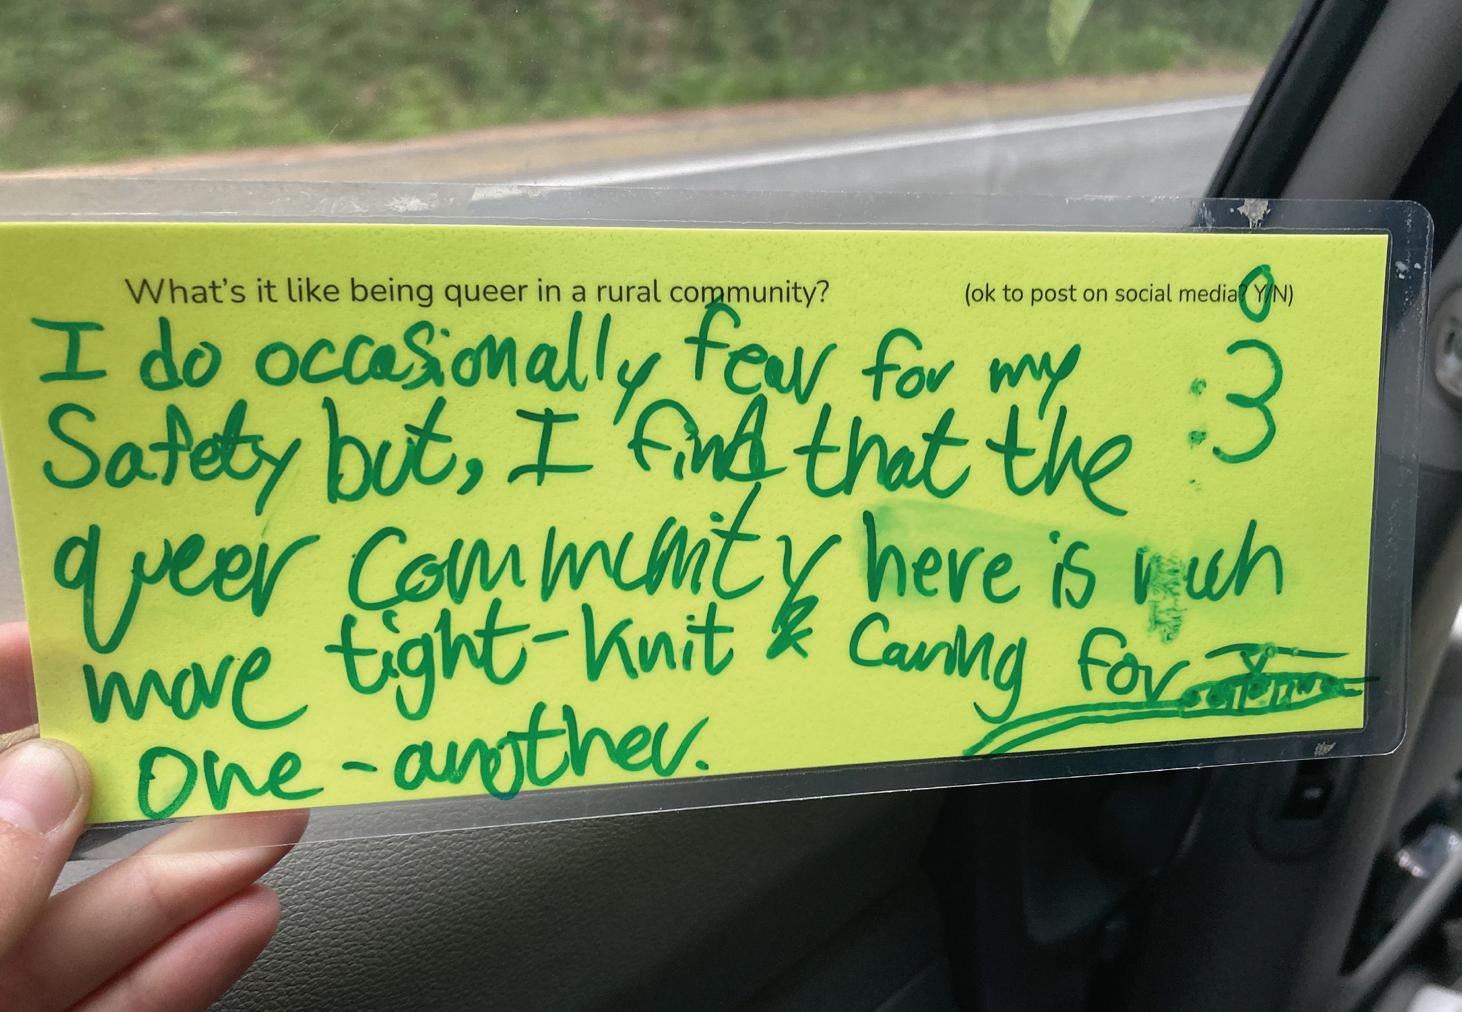 What's it like being queer in a rural community? (ok to post on social media? Y/N)
I do occasionally fear for my :3
Safety but, I find that the
queer community here is much
more tight-knit & caring for
one-another.